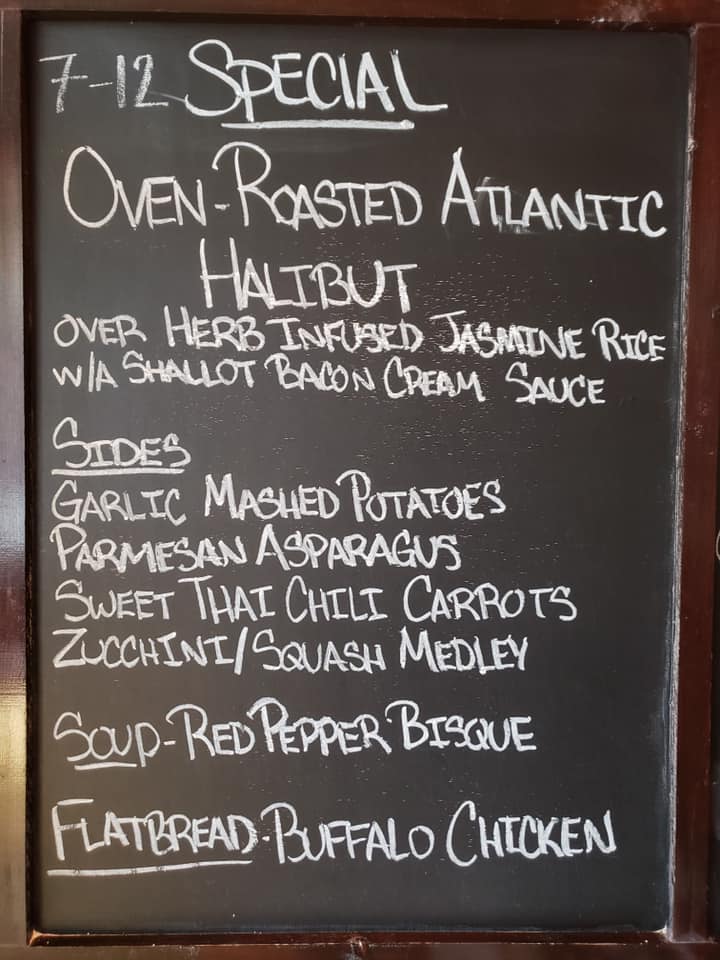 7-12 SPECIAL
OVEN-ROASTED ATLANTIC
HALIBUT
OVER HERB INFUSED JASMINE RICE
W/A SHALLOT BACON CREAM SAUCE
SIDES
GARLIC MASHED POTATOES
PARMESAN ASPARAGUS
SWEET THAI CHILI CARROTS
ZUCCHINI/SQUASH MEDLEY
SOUP-RED PEPPER BISQUE
FLATBREAD-BUFFALO CHICKEN